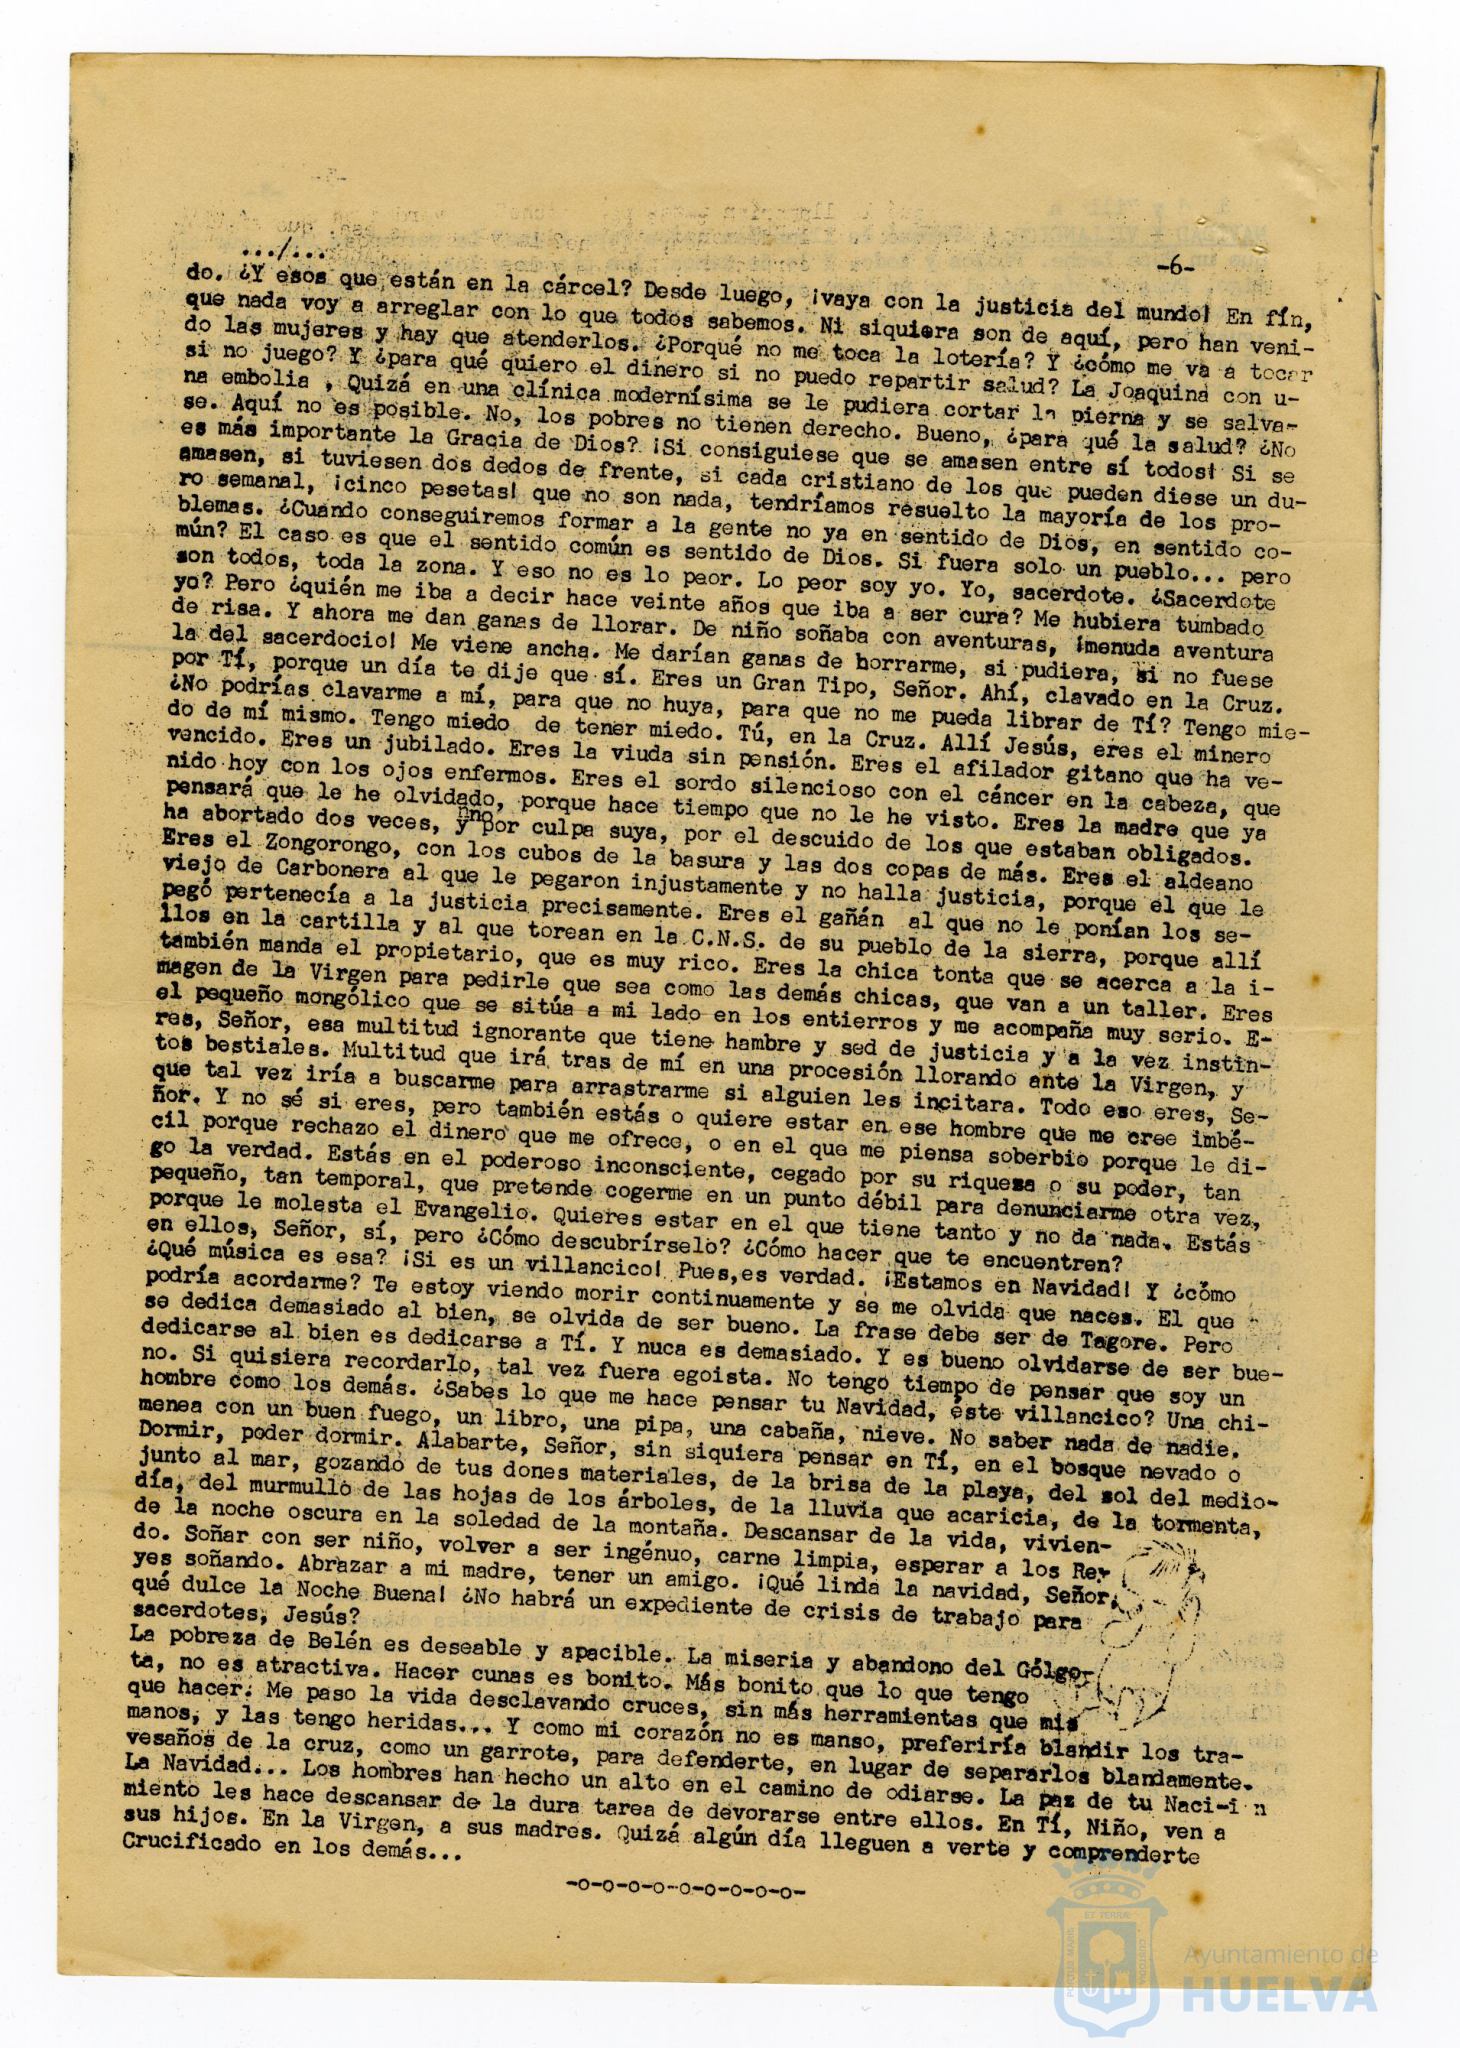 .../...
-6-
do. ¿Y esos que están en la cárcel? Desde luego, ¡vaya con la justicia del mundo! En fín,
que nada voy a arreglar con lo que todos sabemos. Ni siquiera son de aquí, pero han veni-
do las mujeres y hay que atenderlos. ¿Porqué no me toca la lotería? Y ¿cómo me va a tocar
si no juego? Y ¿para qué quiero el dinero si no puedo repartir salud? La Joaquina con u-
na embolia , Quizá en una clínica modernísima se le pudiera cortar la pierna y se salva-
se. Aquí no es posible. No, los pobres no tienen derecho. Bueno, ¿para qué la salud? ¿No
es más importante la Gracia de Dios? ¡Si consiguiese que se amasen entre sí todos! Si se
amasen, si tuviesen dos dedos de frente, si cada cristiano de los que pueden diese un du-
ro semanal, ¡cinco pesetas! que no son nada, tendríamos resuelto la mayoría de los pro-
blemas. ¿Cuándo conseguiremos formar a la gente no ya en sentido de Dios, en sentido co-
mún? El caso es que el sentido común es sentido de Dios. Si fuera solo un pueblo... pero
son todos, toda la zona. Y eso no es lo peor. Lo peor soy yo. Yo, sacerdote. ¿Sacerdote
yo? Pero ¿quién me iba a decir hace veinte años que iba a ser cura? Me hubiera tumbado
de risa. Y ahora me dan ganas de llorar. De niño soñaba con aventuras, ¡menuda aventura
la del sacerdocio! Me viene ancha. Me darían ganas de borrarme, si pudiera, si no fuese
por Tí, porque un día te dije que sí. Eres un Gran Tipo, Señor. Ahí, clavado en la Cruz.
¿No podrías clavarme a mí, para que no huya, para que no me pueda librar de Tí? Tengo mie-
do de mí mismo. Tengo miedo de tener miedo. Tú, en la Cruz. Allí Jesús, eres el minero
vencido. Eres un jubilado. Eres la viuda sin pensión. Eres el afilador gitano que ha ve-
nido hoy con los ojos enfermos. Eres el sordo silencioso con el cáncer en la cabeza, que
pensará que le he olvidado, porque hace tiempo que no le he visto. Eres la madre que ya
ha abortado dos veces, y nno por culpa suya, por el descuido de los que estaban obligados.
Eres el Zongorongo, con los cubos de la basura y las dos copas de más. Eres el aldeano
viejo de Carbonera al que le pegaron injustamente y no halla justicia, porque el que le
pegó pertenecía a la justicia precisamente. Eres el gañán al que no le ponían los se-
llos en la cartilla y al que torean en la C.N.S. de su pueblo de la sierra, porque allí
también manda el propietario, que es muy rico. Eres la chica tonta que se acerca a la i-
magen de la Virgen para pedirle que sea como las demás chicas, que van a un taller. Eres
el pequeño mongólico que se sitúa a mi lado en los entierros y me acompaña muy serio. E-
res, Señor, esa multitud ignorante que tiene hambre y sed de justicia y a la vez instin-
tos bestiales. Multitud que irá tras de mí en una procesión llorando ante la Virgen, y
que tal vez iría a buscarme para arrastrarme si alguien les incitara. Todo eso eres, Se-
ñor. Y no sé si eres, pero también estás o quiere estar en ese hombre que me cree imbé-
cil porque rechazo el dinero que me ofrece, o en el que me piensa soberbio porque le di-
go la verdad. Estás en el poderoso inconsciente, cegado por su riqueza o su poder, tan
pequeño, tan temporal, que pretende cogerme en un punto débil para denunciarme otra vez,
porque le molesta el Evangelio. Quieres estar en el que tiene tanto y no da nada. Estás
en ellos, Señor, sí, pero ¿Cómo descubrírselo? ¿Cómo hacer que te encuentren?
¿Qué música es esa? ¡Si es un villancico! Pues,es verdad. ¡Estamos en Navidad! Y ¿cómo
podría acordarme? Te estoy viendo morir continuamente y se me olvida que naces. El que
se dedica demasiado al bien, se olvida de ser bueno. La frase debe ser de Tagore. Pero
dedicarse al bien es dedicarse a Tí. Y nuca es demasiado. Y es bueno olvidarse de ser bue-
no. Si quisiera recordarlo, tal vez fuera egoista. No tengo tiempo de pensar que soy un
hombre como los demás. ¿Sabes lo que me hace pensar tu Navidad, éste villancico? Una chi-
menea con un buen fuego, un libro, una pipa, una cabaña, nieve. No saber nada de nadie.
Dormir, poder dormir. Alabarte, Señor, sin siquiera pensar en Tí, en el bosque nevado o
junto al mar, gozando de tus dones materiales, de la brisa de la playa, del sol del medio-
día, del murmullo de las hojas de los árboles, de la lluvia que acaricia, de la tormenta,
de la noche oscura en la soledad de la montaña. Descansar de la vida, vivien-
do. Soñar con ser niño, volver a ser ingénuo, carne limpia, esperar a los Re-
yes soñando. Abrazar a mi madre, tener un amigo. ¡Qué linda la navidad, Señor,
qué dulce la Noche Buena! ¿No habrá un expediente de crisis de trabajo para
sacerdotes, Jesús?
La pobreza de Belén es deseable y apacible. La miseria y abandono del Gólgo-
ta, no es atractiva. Hacer cunas es bonito. Más bonito que lo que tengo
que hacer. Me paso la vida desclavando cruces, sin más herramientas que mis
manos, y las tengo heridas... Y como mi corazón no es manso, preferiría blandir los tra-
vesaños de la cruz, como un garrote, para defenderte, en lugar de separarlos blandamente.
La Navidad... Los hombres han hecho un alto en el camino de odiarse. La paz de tu Naci-i n
miento les hace descansar de la dura tarea de devorarse entre ellos. En Tí, Niño, ven a
sus hijos. En la Virgen, a sus madres. Quizá algún día lleguen a verte y comprenderte
Crucificado en los demás...
-o-o-o-o-o-o-o-o-o-
PORTUS MARIS ET TERRAE CUSTODIA
Ayuntamiento de
HUELVA